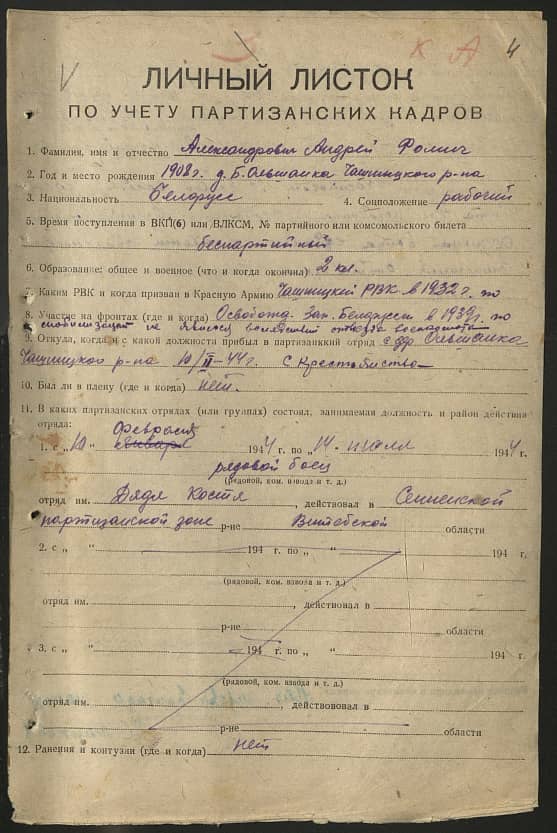 К А 4
V
ЛИЧНЫЙ ЛИСТОК
ПО УЧЕТУ ПАРТИЗАНСКИХ КАДРОВ
1. Фамилия, имя и отчество Александрович Андрей Фомич
2. Год и место рождения 1908 г. д. Б. Ольшанка Чашницкого р-на
3. Национальность Белорусс 4. Соцположение рабочий
5. Время поступления в ВКП(б) или ВЛКСМ, № партийного или комсомольского билета
беспартийный
6. Образование: общее и военное (что и когда окончил) 2 кл.
7. Каким РВК и когда призван в Красную Армию Чашницкий РВК в 1932 г. по
8. Участие на фронтах (где и когда) Освобожд. Зап. Белоруссии в 1939 г. по
мобилизации не явился вследствии
9. Откуда, когда и с какой должности прибыл в партизанский отряд с дер Ольшанка
Чашницкого р-на 10/II-44 г. с Крестьянства
10. Был ли в плену (где и когда) нет.
11. В каких партизанских отрядах (или группах) состоял, занимаемая должность и район действия
отряда: февраля
1. с „ 10 января 1944 г. по „ 14 - июля 1944 г.
рядовой боец
(рядовой, ком. взвода и т. д.)
отряд им. Дядя Костя, действовал в Сенненской
партизанской зоне р-не Витебской области
2. с „ “ 194 г. по „ “ 194 г.
(рядовой, ком. взвода и т. д.)
отряд им. , действовал в
р-не области
3. с „ “ 194 г. по „ “ 194 г.
(рядовой, ком. взвода и т. д.)
отряд им. , действововал в
р-не области
12. Ранения и контузии (где и когда) нет